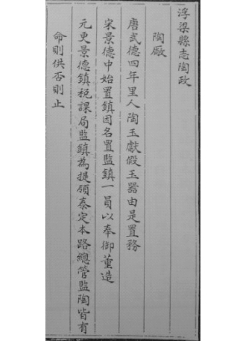 浮梁縣志陶政
陶厰
唐武德四年里人陶玉獻假玉器由是置務
宋景德中始置鎮因名置監鎮一員以奉御董造
元更景德鎮稅課局監鎮為提領泰定本路總管監陶皆有
命則供否則止